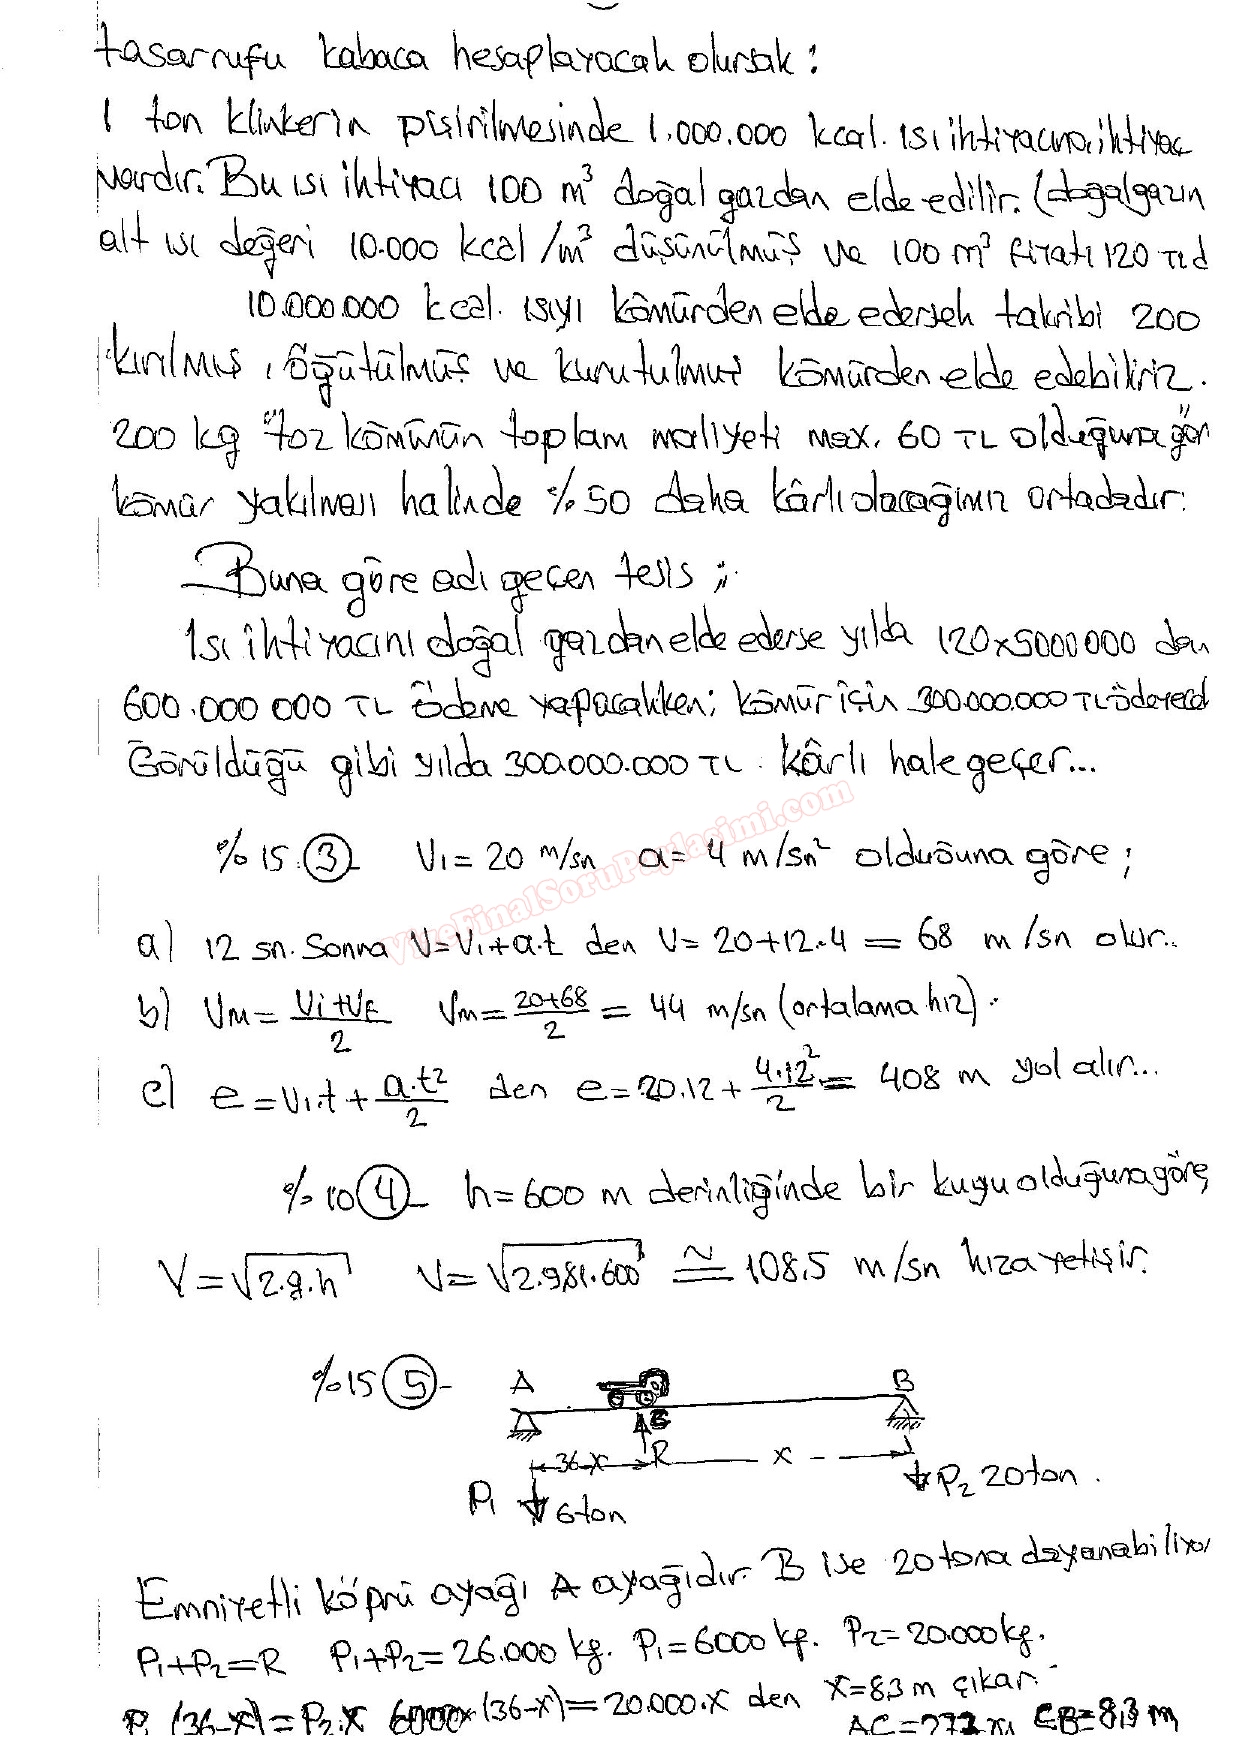 tasarrufu kabaca hesaplayacak olursak:
1 ton klinkerin pişirilmesinde 1.000.000 kcal. ısı ihtiyacına ihtiyaç
vardır. Bu ısı ihtiyacı 100 m³ doğal gazdan elde edilir. (doğalgazın
alt ısı değeri 10.000 kcal/m³ düşünülmüş ve 100 m³ fiyatı 120 TL d
10.000.000 kcal. ısıyı kömürden elde edersek takribi 200
kırılmış, öğütülmüş ve kurutulmuş kömürden elde edebiliriz.
200 kg "toz kömürün toplam maliyeti max. 60 TL olduğuna" gör
kömür yakılması halinde %50 daha kârlı olacağımız ortadadır.
Buna göre adı geçen tesis;
Isı ihtiyacını doğal gazdan elde ederse yılda 120x5000000 den
600.000 000 TL ödeme yapacakken; kömür için 300.000.000 TL ödeyecek
Görüldüğü gibi yılda 300.000.000 TL. kârlı hale geçer...
%15 3- V₁ = 20 m/sn a = 4 m/sn² olduğuna göre;
a) 12 sn. Sonra V=V₁+a.t den V= 20+12.4 = 68 m/sn olur..
b) VM = Vi+VF/2 Vm = 20+68/2 = 44 m/sn (ortalama hız).
c) e = V₁.t + a.t²/2 den e = 20.12 + 4.12²/2 = 408 m yol alır...
%10 4- h = 600 m derinliğinde bir kuyu olduğuna göre,
V = √2.g.h V = √2.9,81.600 ≅ 108,5 m/sn hıza yetişir.
%15 5-
A B
36-x R x
P₁ 6 ton P₂ 20 ton.
Emniyetli köprü ayağı A ayağıdır. B ise 20 tona dayanabiliyor
P₁+P₂=R P₁+P₂ = 26.000 kg. P₁ = 6000 kg. P₂ = 20.000 kg.
P₁ (36-x) = P₂.x 6000x(36-x) = 20.000.x den x = 8,3 m çıkar.
AC = 27,7 m CB = 8,3 m
VizeFinalSoruPaylasimi.com